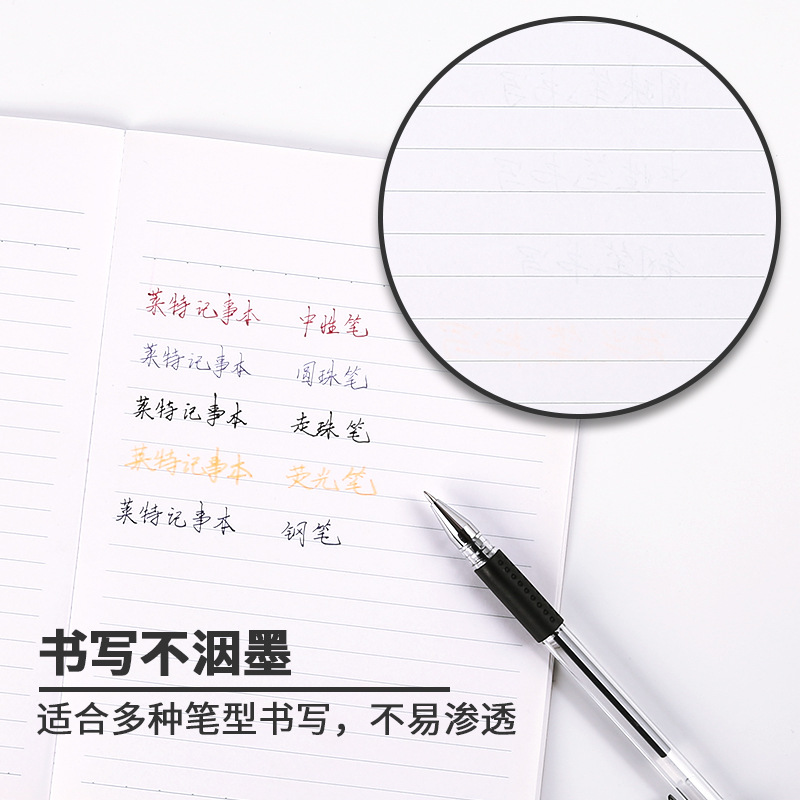 莱特记事本 中性笔
莱特记事本 圆珠笔
莱特记事本 走珠笔
莱特记事本 荧光笔
莱特记事本 钢笔
书写不洇墨
适合多种笔型书写，不易渗透